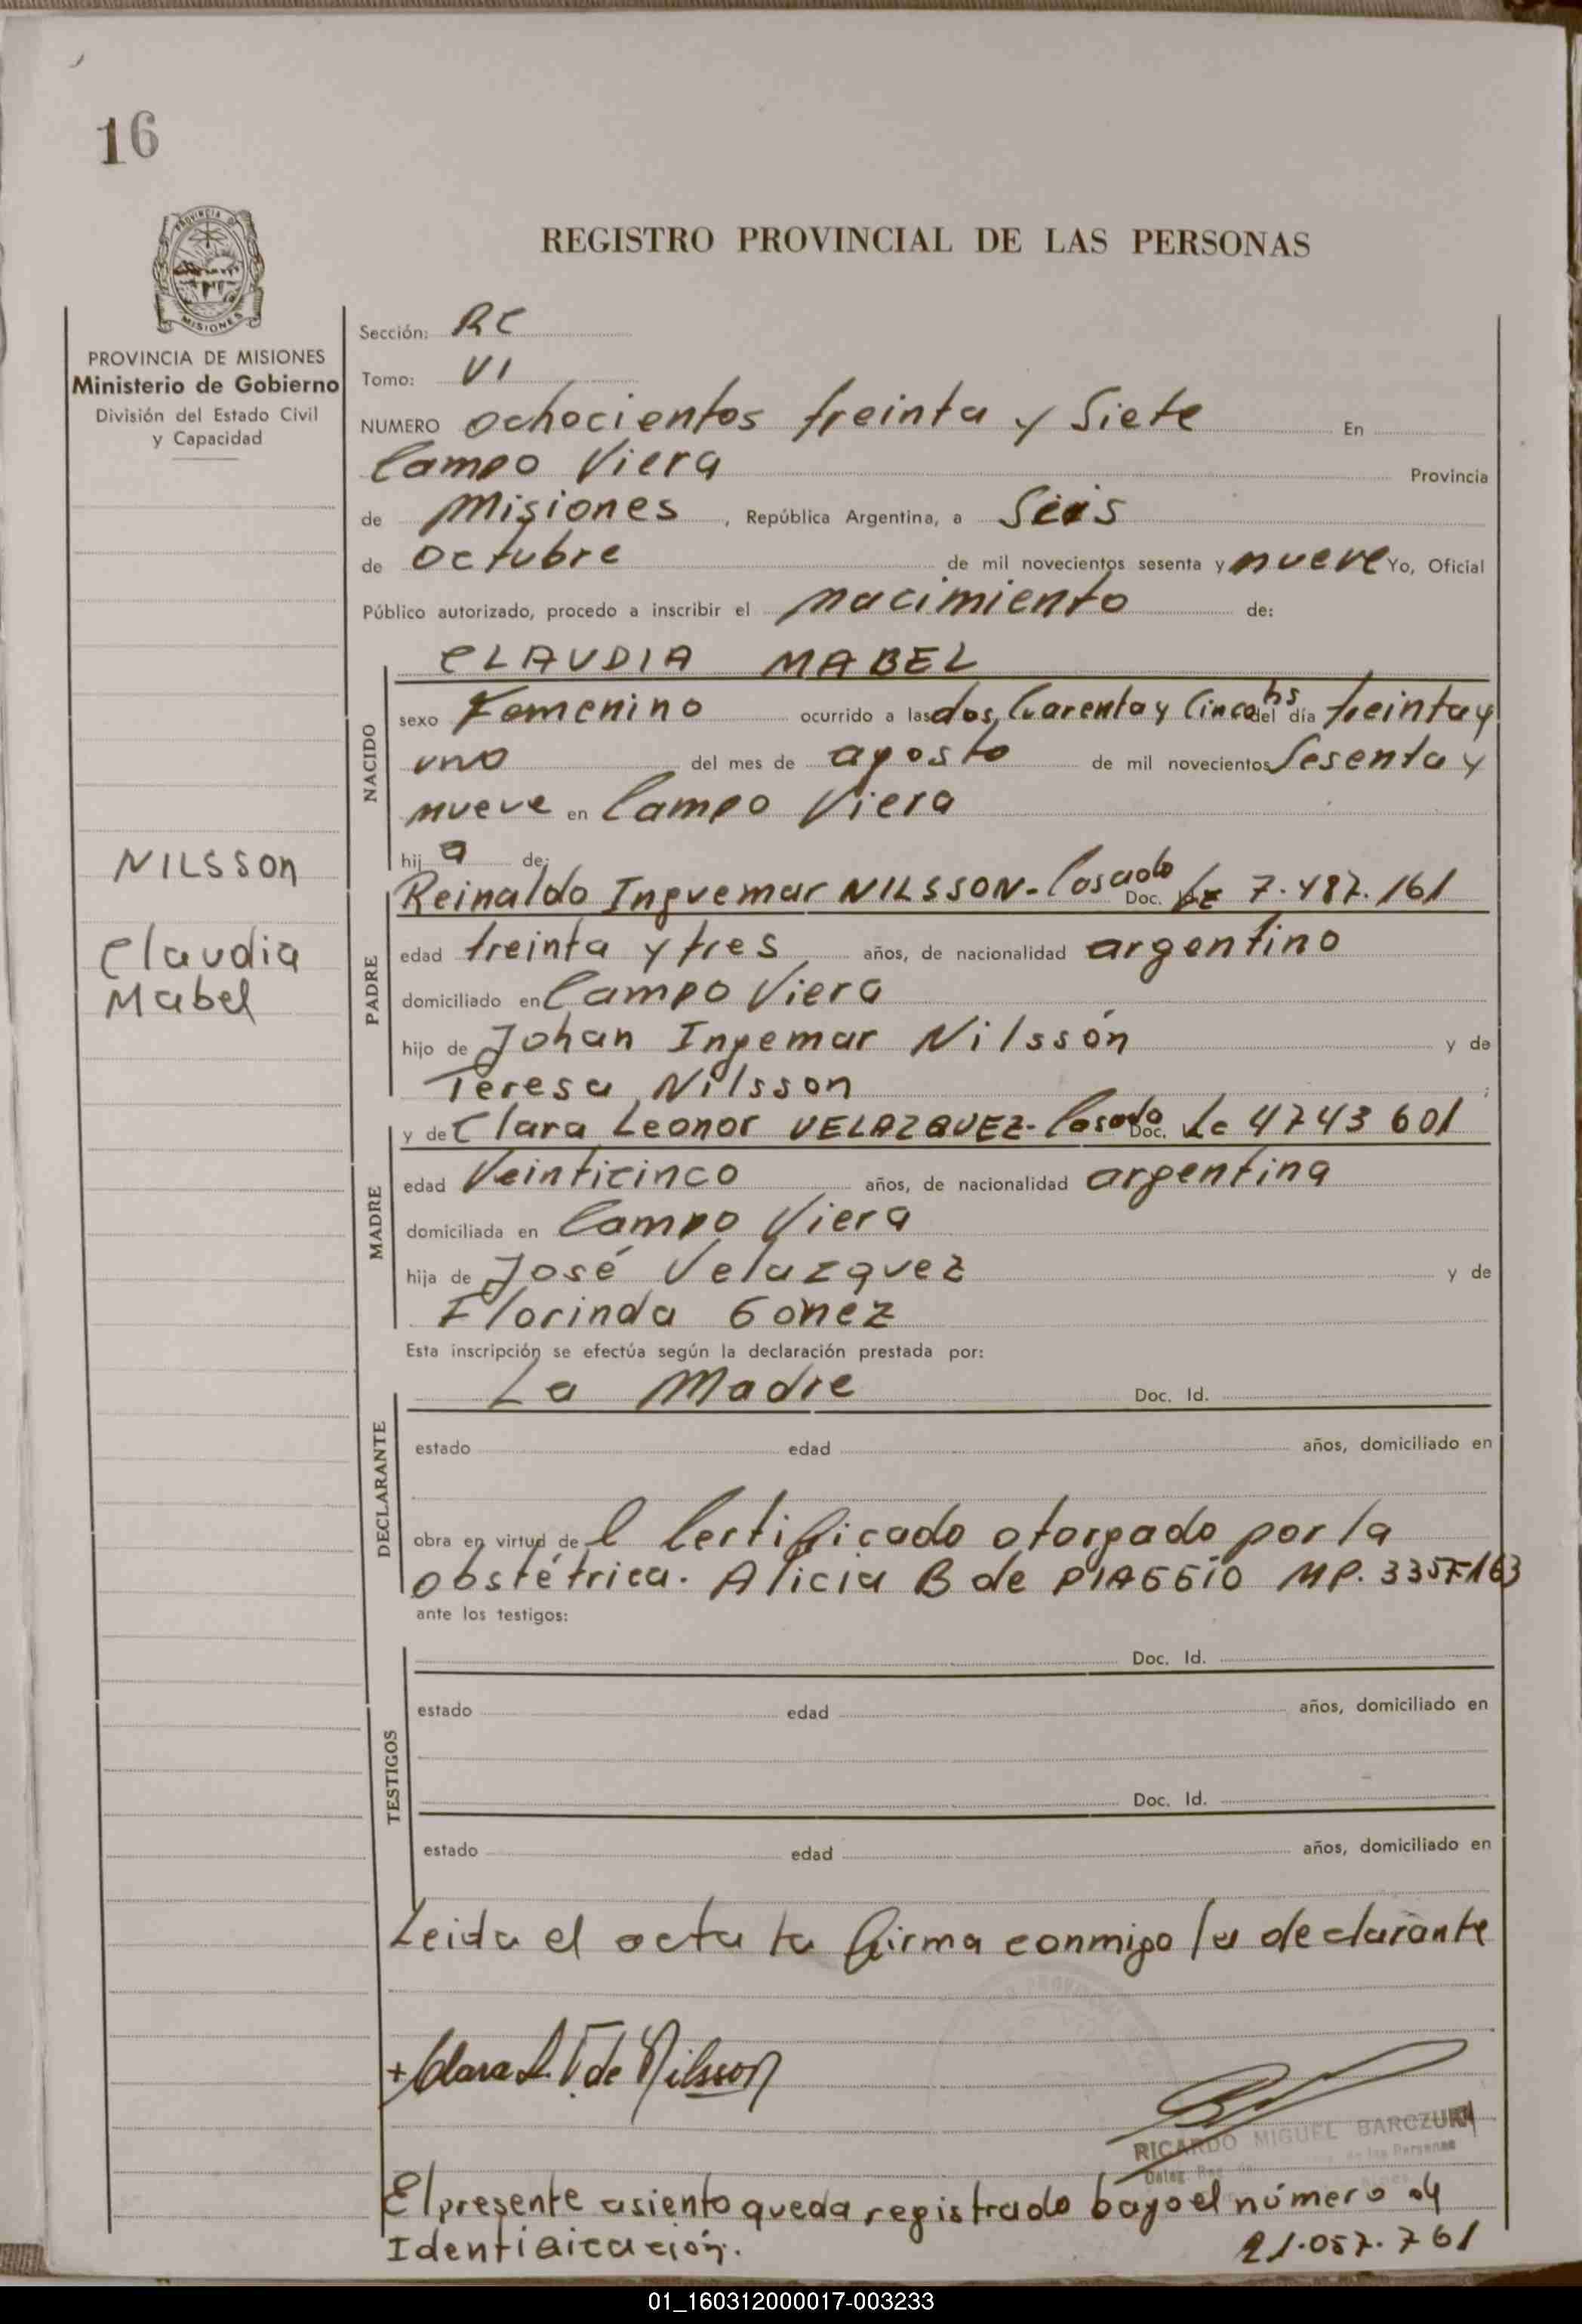 16
REGISTRO PROVINCIAL DE LAS PERSONAS
PROVINCIA DE MISIONES
Ministerio de Gobierno
División del Estado Civil
y Capacidad
NILSSON
Claudia
Mabel
Sección: RC
Tomo: VI
NUMERO ochocientos treinta y Siete En
Campo Viera Provincia
de Misiones, República Argentina, a Seis
de Octubre de mil novecientos sesenta y nueve Yo, Oficial
Público autorizado, procedo a inscribir el nacimiento de:
CLAUDIA MABEL
NACIDO
sexo Femenino ocurrido a las dos, Cuarenta y Cinco hs del día treinta y
uno del mes de agosto de mil novecientos Sesenta y
nueve en Campo Viera
hija de:
PADRE
Reinaldo Inguemar NILSSON-Casado Doc. 7.487.161
edad treinta y tres años, de nacionalidad argentino
domiciliado en Campo Viera
hijo de Johan Ingemar Nilssón y de
Teresa Nilsson
MADRE
y de Clara Leonor VELAZQUEZ-Casada Doc. Lc 4743601
edad Veinticinco años, de nacionalidad argentina
domiciliada en Campo Viera
hija de José Velazquez y de
Florinda Gonez
Esta inscripción se efectúa según la declaración prestada por:
DECLARANTE
La Madre Doc. Id.
estado edad años, domiciliado en
obra en virtud del Certificado otorgado por la
obstétrica. Alicia B de PIAGGIO MP. 335F163
ante los testigos:
TESTIGOS
Doc. Id.
estado edad años, domiciliado en
Doc. Id.
estado edad años, domiciliado en
Leida el acta la firma conmigo la declarante
+Clara L. V. de Nilsson
RICARDO MIGUEL BARCZUK
El presente asiento queda registrado bajo el número de
Identificación. 21.057.761
01_160312000017-003233